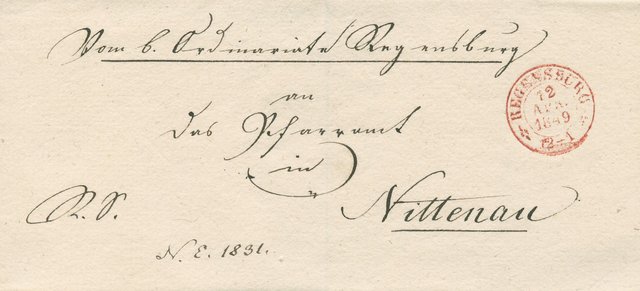 Vom b. Ordinariate Regensburg
an
das Pfarramt
in
Nittenau
R. S.
N. E. 1831.
REGENSBURG
12
APR.
1849
12-1